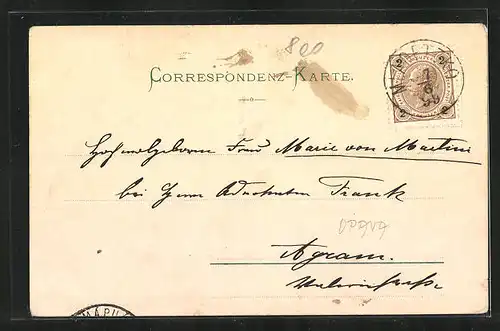 800
CORRESPONDENZ-KARTE.
2 2
2 2
7
6
Hochwolgeboren Frau Marie von Martini
bei Herrn Advokaten Frank
Agram.